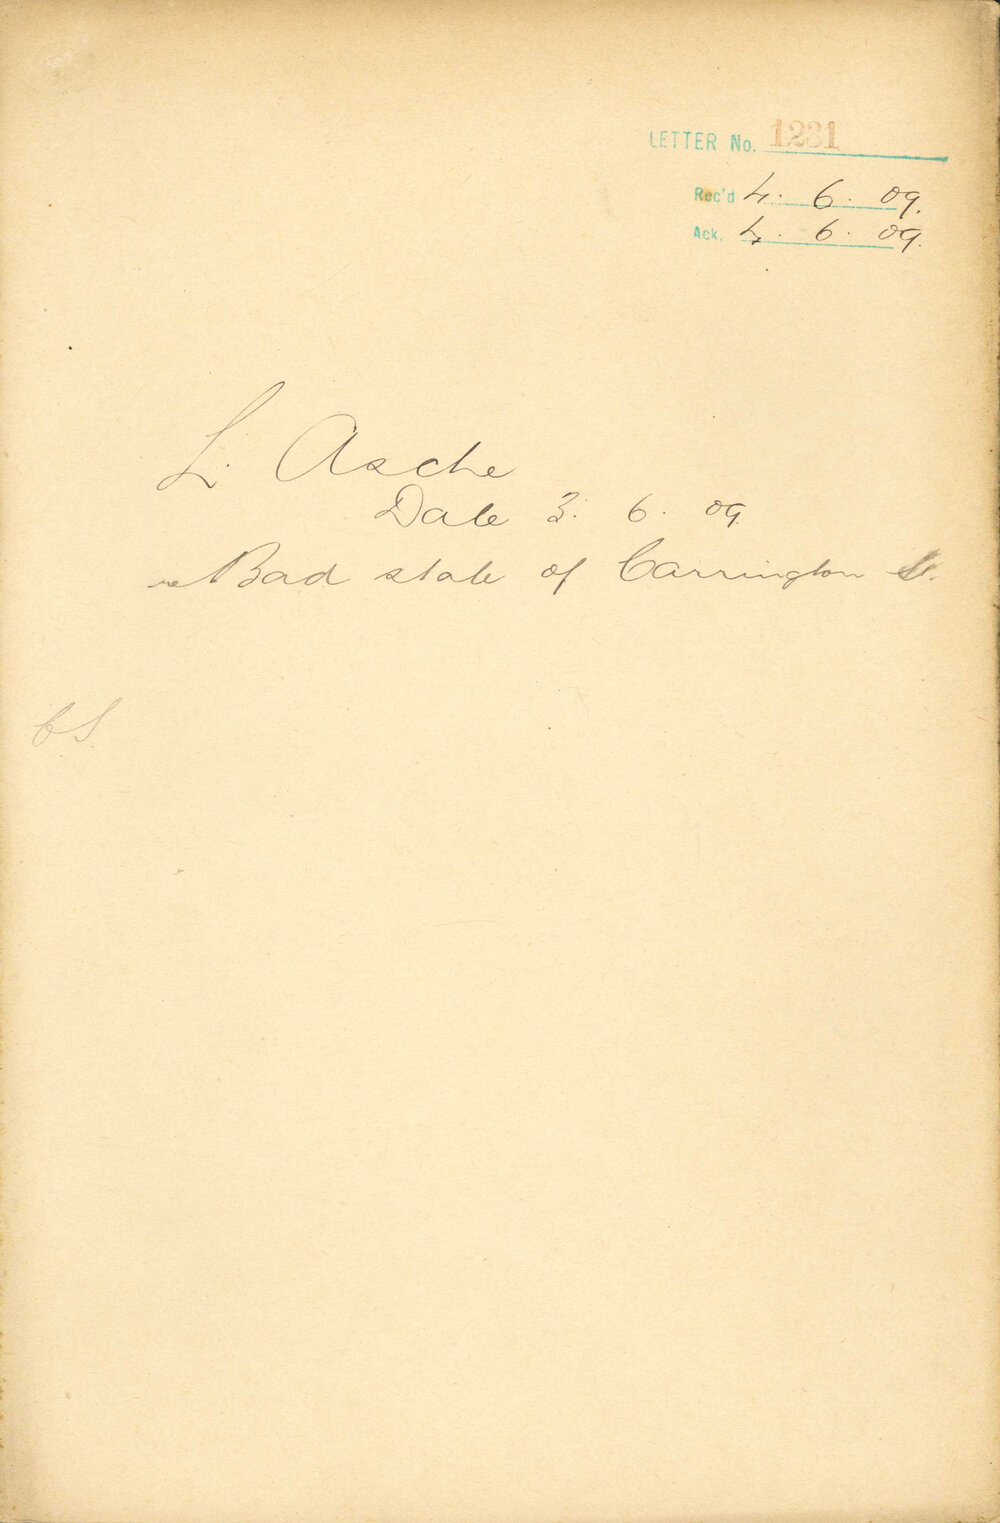 LETTER No. 1231
Rec'd 4. 6. 09.
Ack. 4. 6. 09.
L. Asche
Date 3. 6. 09.
re Bad state of Carrington St.